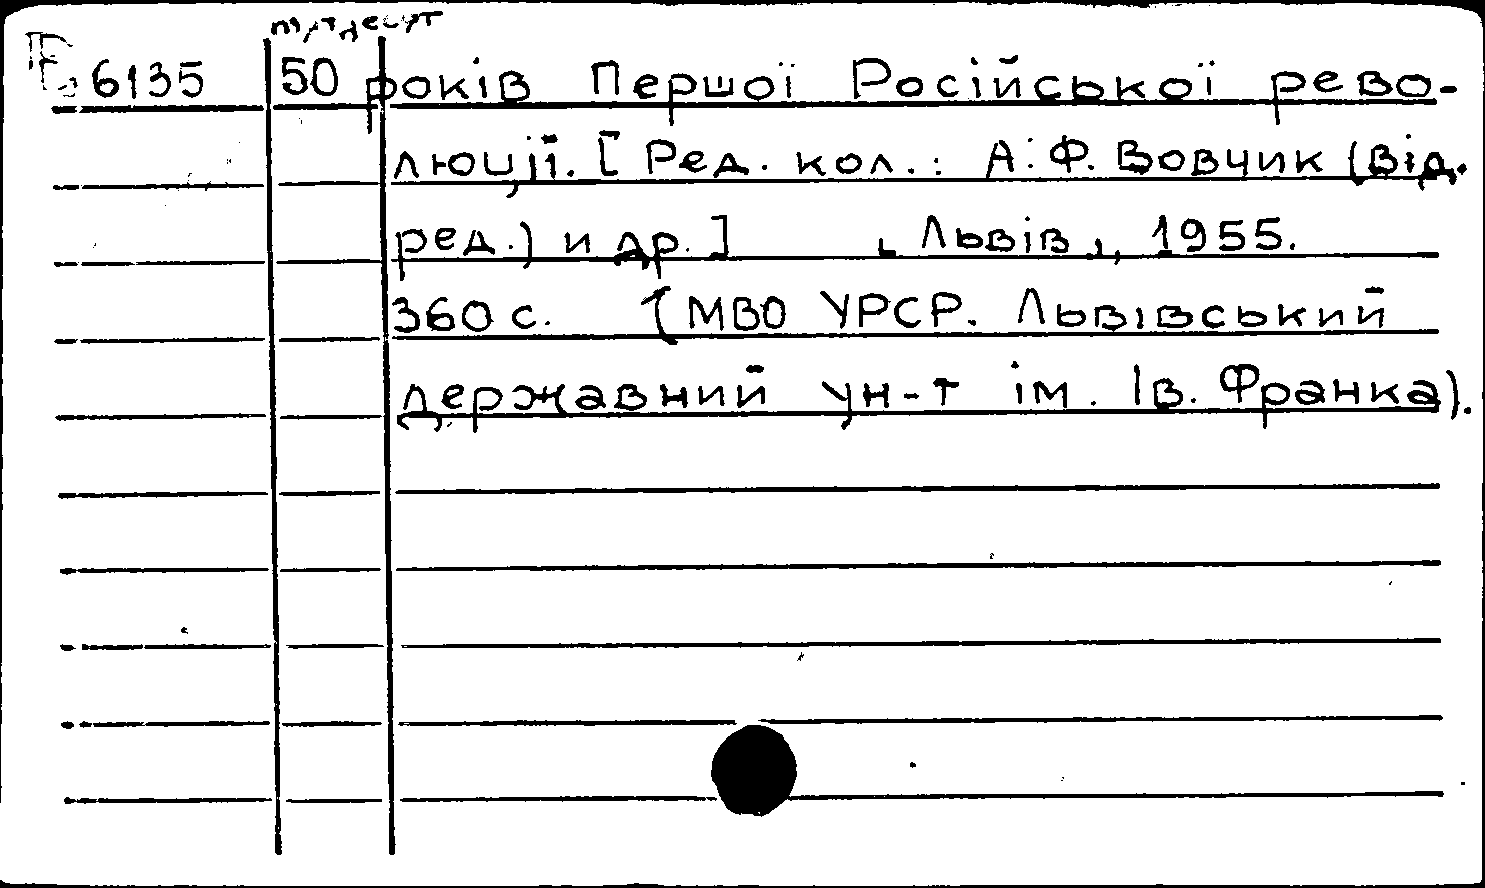 6135 50 років Першої Російської рево-
люції. [Ред. кол.: А.Ф. Вовчик (від.
ред.) и др.] [Львів], 1955.
360 с. (МВО УРСР. Львівський
державний ун-т ім. Ів. Франка).